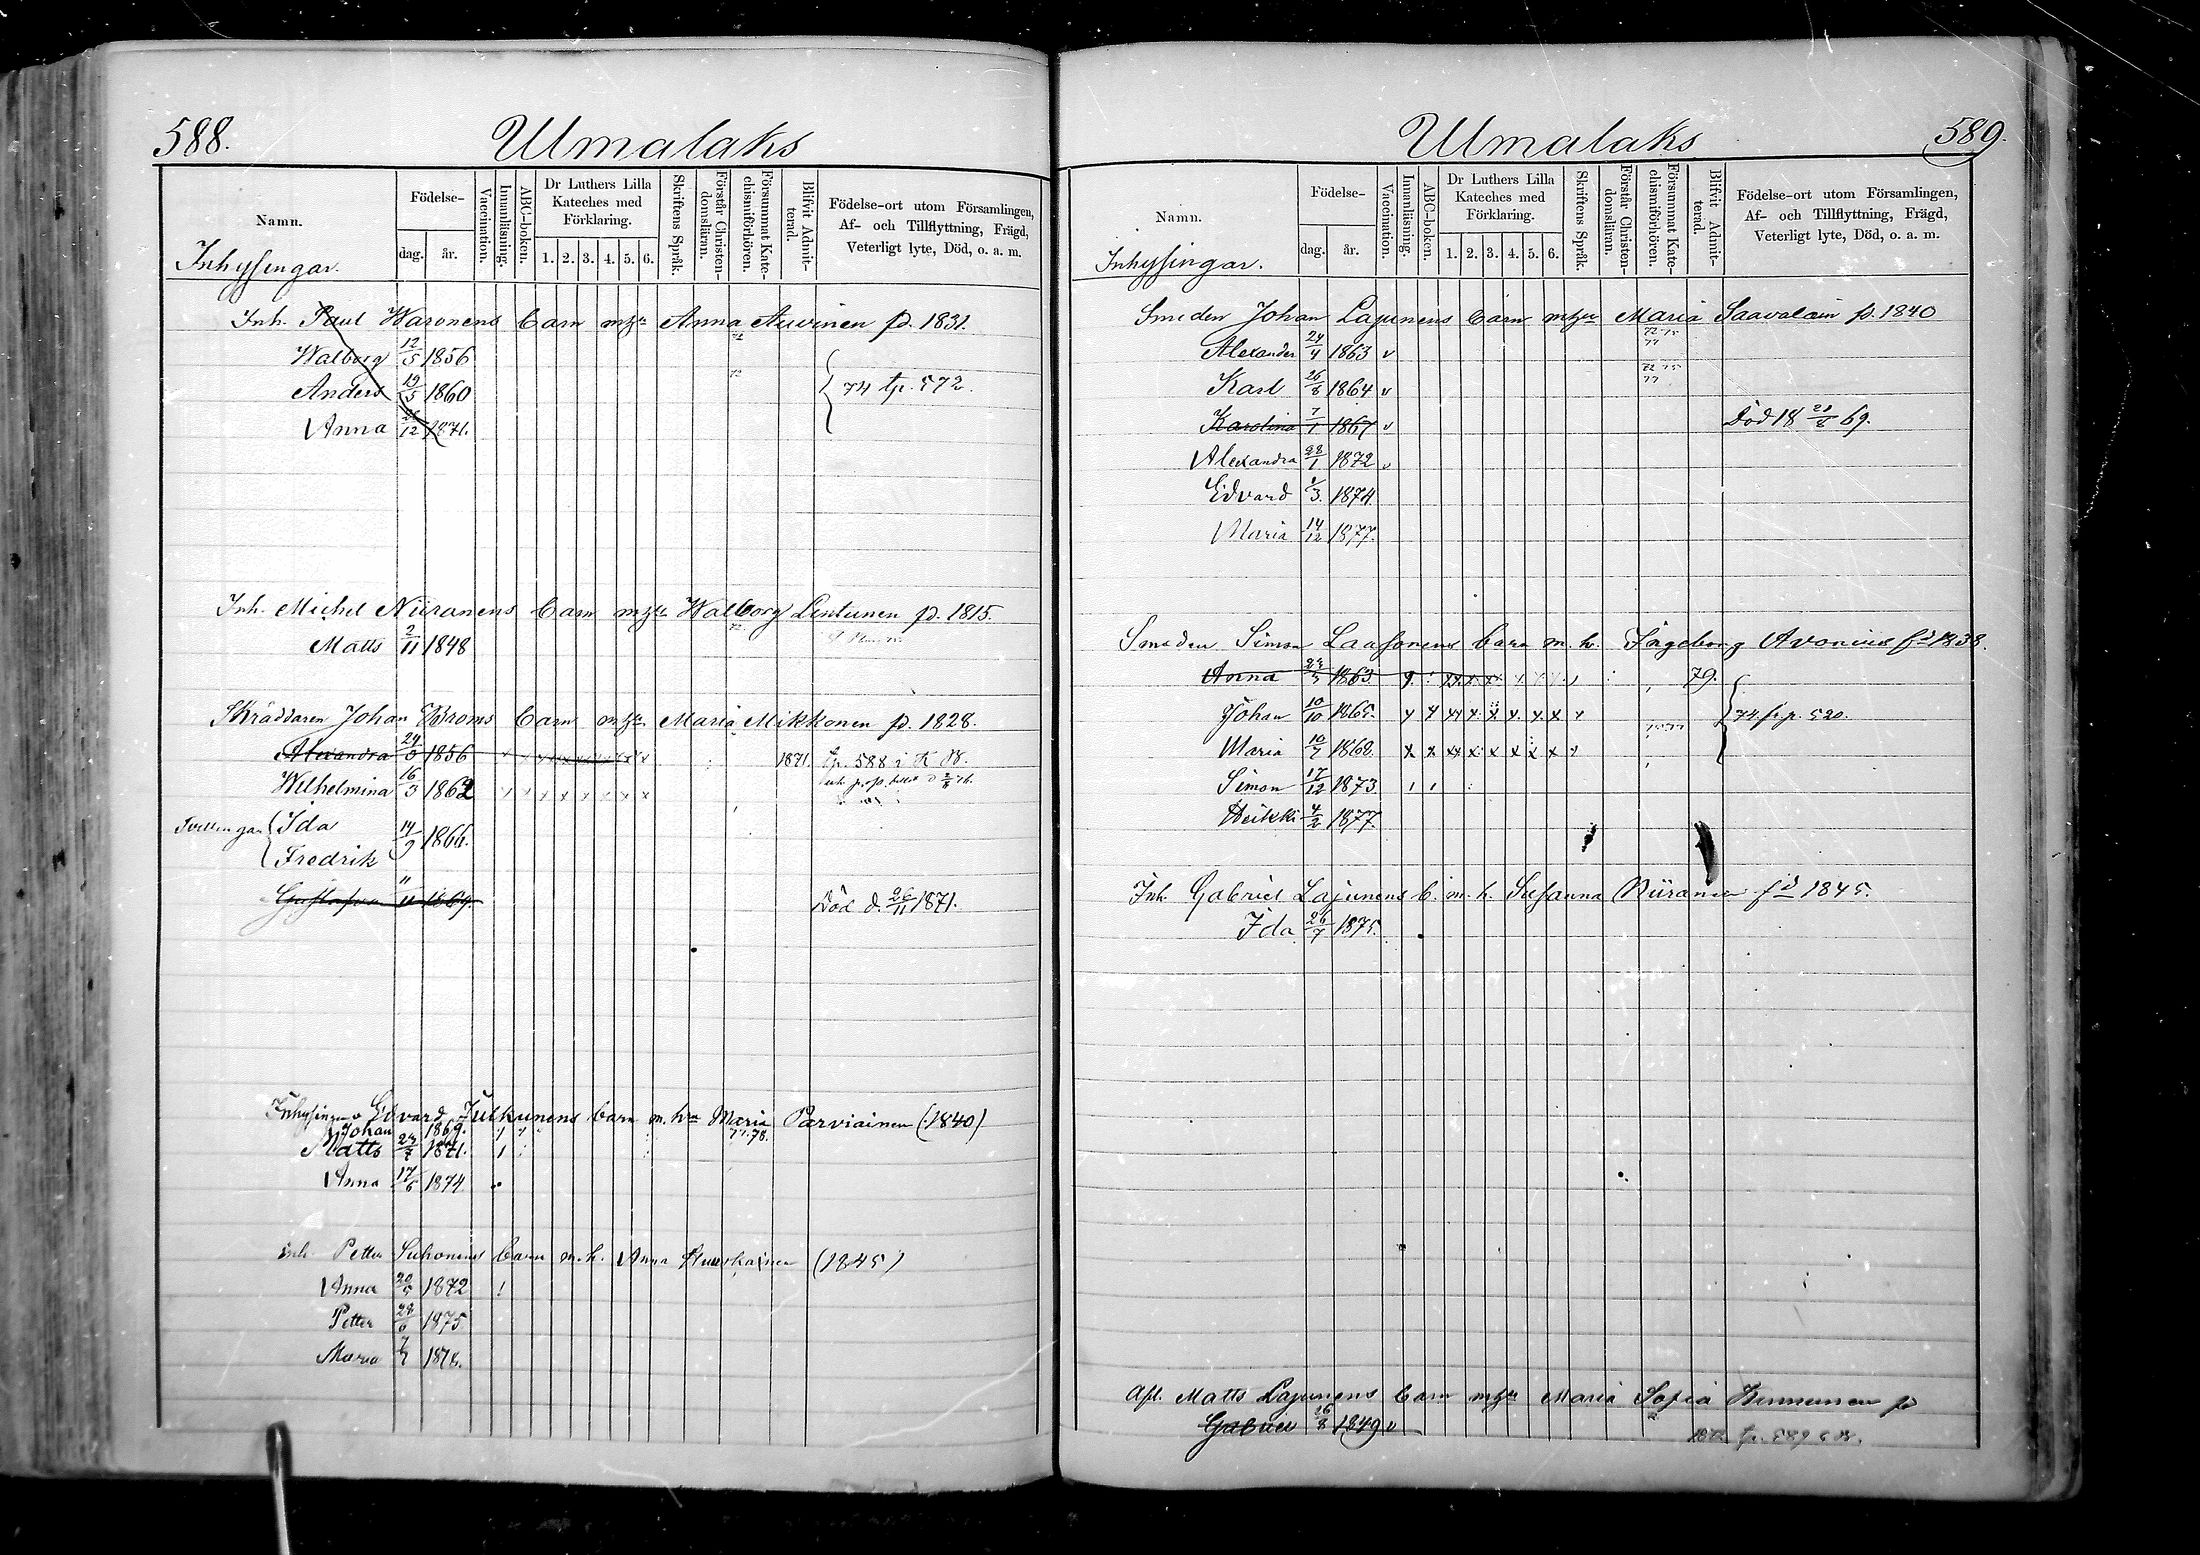 588. Umalaks
Namn. Födelse- Vaccination. Innanläsning. ABC-boken. Dr Luthers Lilla Kateches med Förklaring. Skriftens Språk. Förstår Christendomsläran. Försummat Katechismiförhören. Blifvit Admitterad. Födelse-ort utom Församlingen, Af- och Tillflyttning, Frägd, Veterligt lyte, Död, o. a. m.
dag. år. 1. 2. 3. 4. 5. 6.
Inhysingar.
Inh. Paul Waronens barn m hu Anna Auvinen fd. 1831.
Walborg 12/5 1856
Anders 19/5 1860 74 tp. 572.
Anna 1871.
Inh. Michel Niiranens barn m hu Walborg Lintunen fd. 1815.
Matts 2/11 1848
Skräddaren Johan Broms barn m hu Maria Mikkonen fd. 1828.
Alexandra 1856 1871. tp. 588 i K B.
Wilhelmina 16/3 1862
Tvillingar Ida 14/9 1866.
Fredrik
Gustafva 11/11 1869. Död d. 26/11 1871.
Inhysingen Edvard Julkunens barn m. hu Maria Parviainen (1840)
Johan 1869. 77. 78.
Matts 1871.
Anna 17/6 1874
inh. Petter Suhonens barn m. h. Anna (1845)
Anna 1872
Petter 28/6 1875
Maria 1878.
Umalaks 589.
Namn. Födelse- Vaccination. Innanläsning. ABC-boken. Dr Luthers Lilla Kateches med Förklaring. Skriftens Språk. Förstår Christendomsläran. Försummat Katechismiförhören. Blifvit Admitterad. Födelse-ort utom Församlingen, Af- och Tillflyttning, Frägd, Veterligt lyte, Död, o. a. m.
dag. år. 1. 2. 3. 4. 5. 6.
Inhysingar.
Smeden Johan Lajunens barn m hu Maria Saavalain f. 1840
Alexander 24/4 1863 v 72 75 77
Karl 26/8 1864 v 72 75 77
Karolina 7/1 1867 v Död 18 69.
Alexandra 28/1 1872 v
Edvard 1/3 1874
Maria 14/12 1877.
Smeden Simon Laasonens barn m. h. Ingeborg Avonius fd 1838.
Anna 1863 79.
Johan 10/10 1865. 74 fr p. 520.
Maria 10/7 1868.
Simon 17/12 1873
Heikki 4/2 1877.
Inh. Gabriel Lajunens b. m. h. Susanna Niiranen fd 1845.
Ida 26/7 1875.
Afl. Matts Lajunens barn m hu Maria Sofia Kinnunen fd
Gabriel 26/8 1849 v tp. 589 K B.